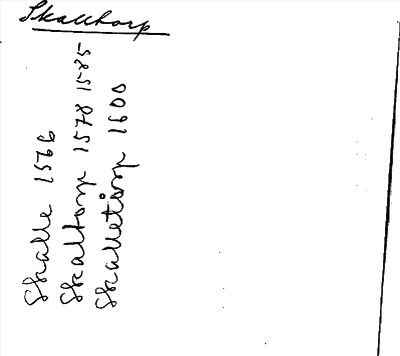 Skalltorp
Skalle 1566
Skaltorp 1578 1585
Skalletorp 1600